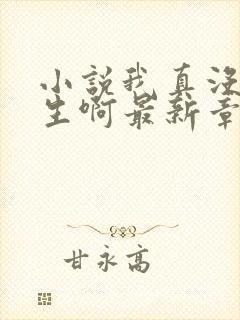 小説我真没
生啊最新章
甘永高